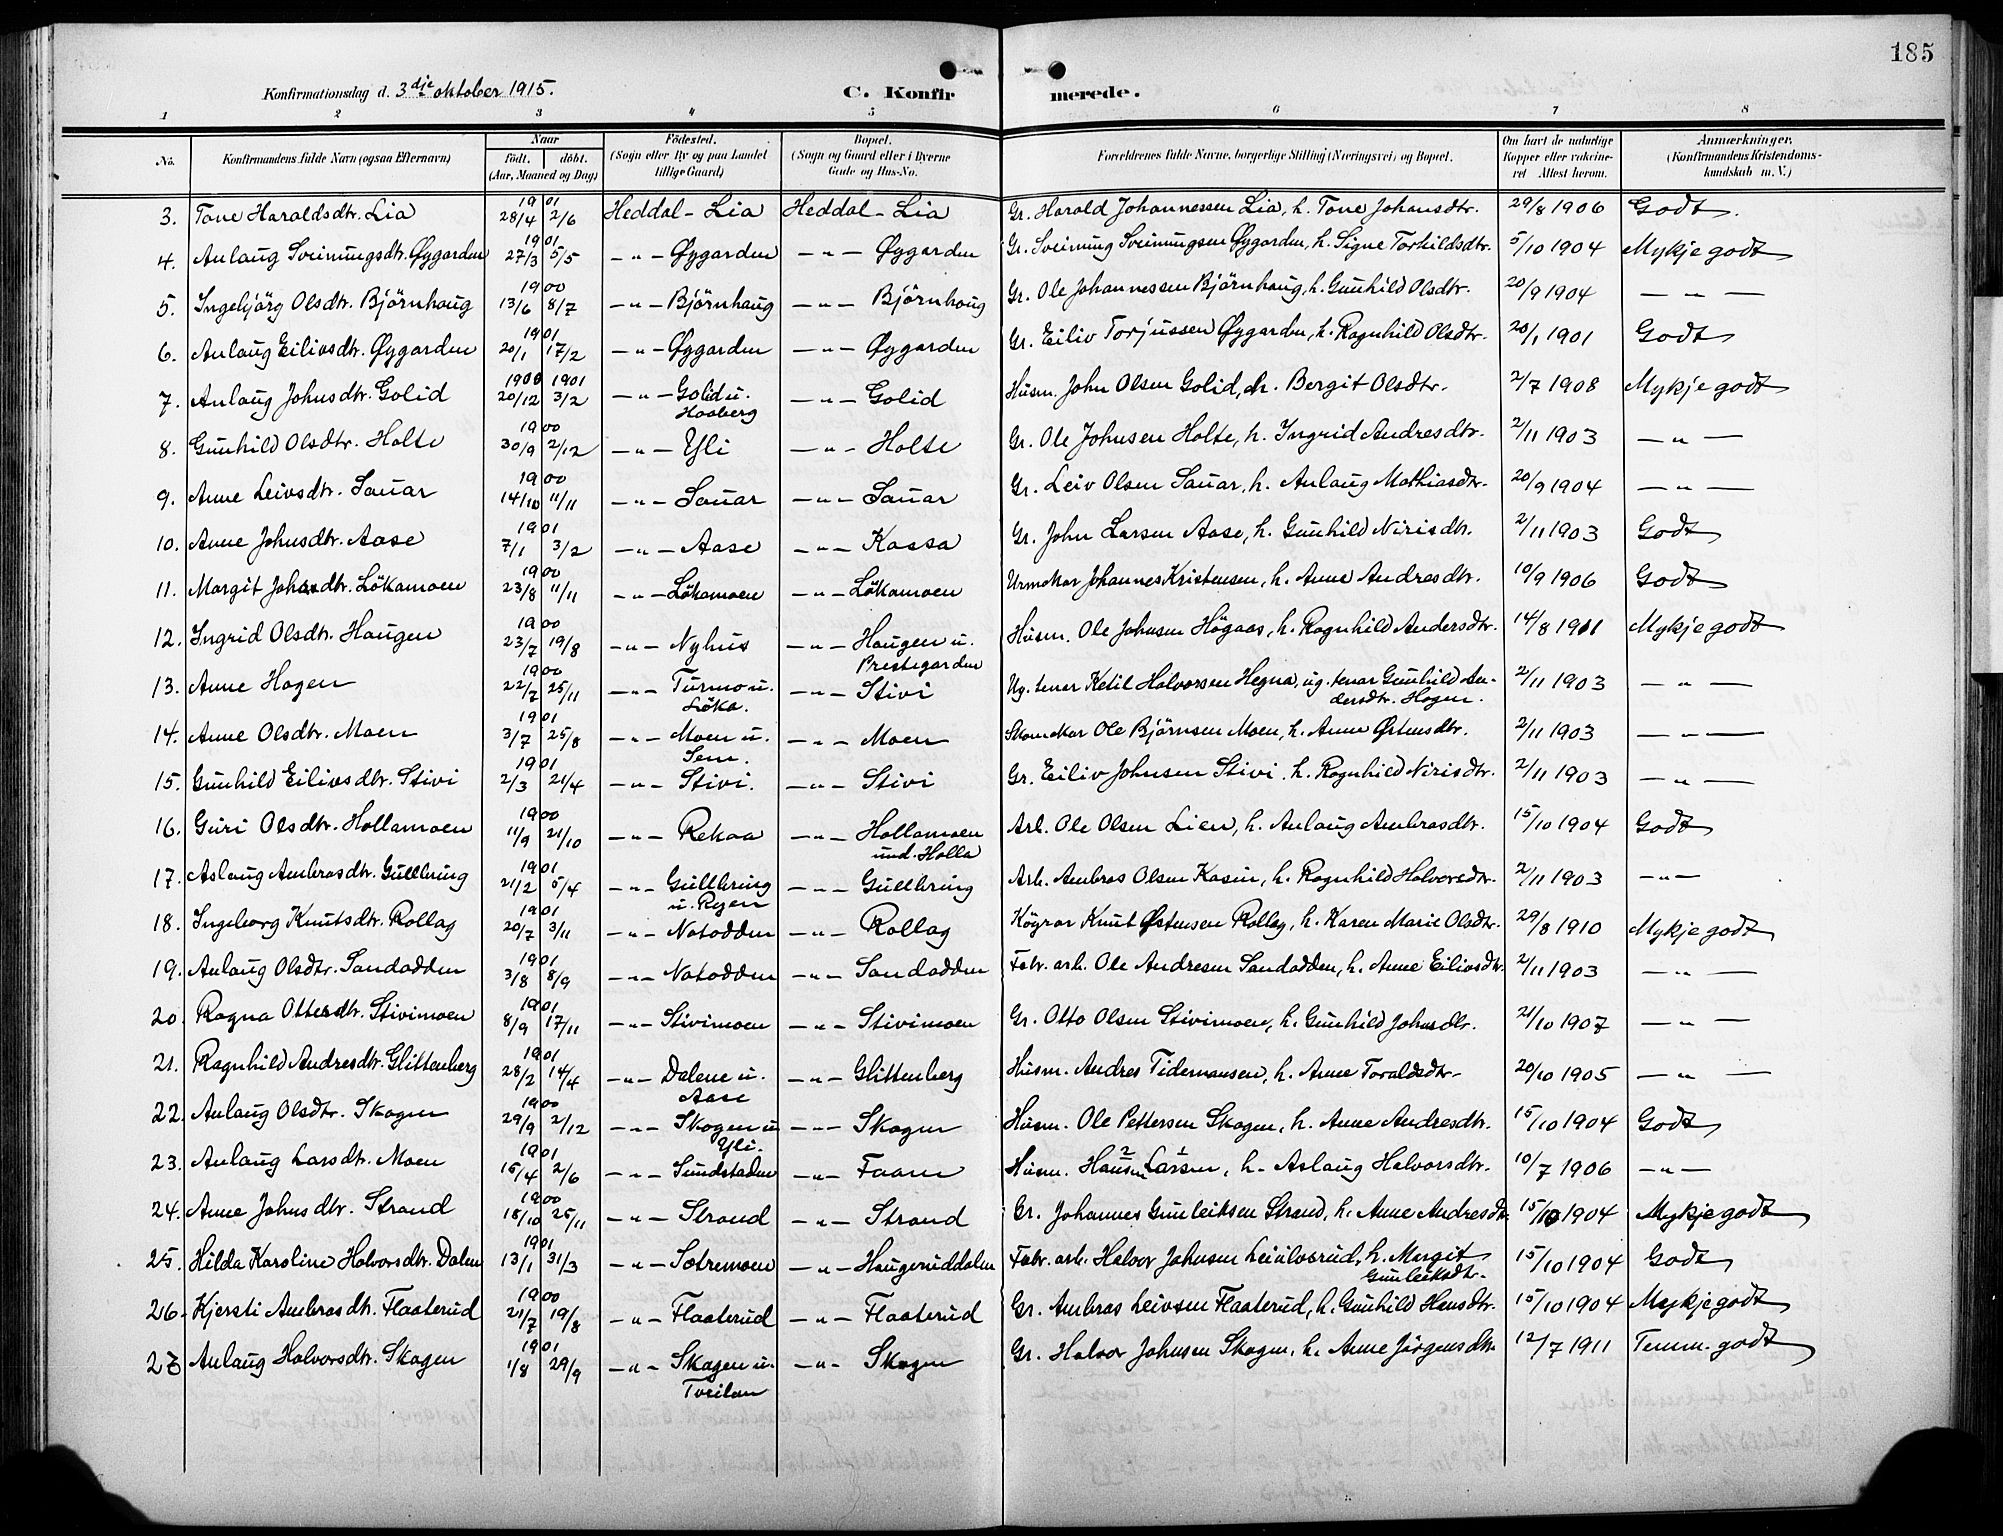 185
Konfirmationsdag d. 3dje oktober 1915. C. Konfirmerede.
1 2 3 4 5 6 7 8
No. Konfirmandens fulde Navn (ogsaa Efternavn) Naar födt. döbt. (Aar, Maaned og Dag) Födested. (Sogn eller By og paa Landet tillige Gaard) Bopæl. (Sogn og Gaard eller i Byerne Gade og Hus-No. Forældrenes fulde Navne, borgerlige Stilling (Næringsvei) og Bopæl. Om havt de naturlige Kopper eller vakcineret. Attest herom. Anmærkninger. (Konfirmandens Kristendomskundskab m. V.)
3. Tone Haraldsdtr. Lia 1901 28/4 2/6 Heddal - Lia Heddal - Lia Gr. Harald Johannessen Lia, h. Tone Johansdtr. 29/8 1906 Godt.
4. Aulaug Sveinungsdtr. Øygarden 1901 27/3 5/5 -"- Øygarden -"- Øygarden Gr. Sveinung Sveinungsen Øygarden, h. Signe Torhildsdtr. 5/10 1904 Mykje godt
5. Ingebjörg Olsdtr. Björnhaug 1900 13/6 8/7 -"- Björnhaug -"- Björnhaug Gr. Ole Johannessen Björnhaug, h. Gunhild Olsdtr. 20/9 1904 -"-
6. Aulaug Eilivsdtr. Øygarden 1901 20/1 17/2 -"- Øygarden -"- Øygarden Gr. Eiliv Torjussen Øygarden, h. Ragnhild Olsdtr. 20/1 1901 Godt
7. Aulaug Johnsdtr. Golid 1900 1901 20/12 3/2 -"- Golid u. Haaberg -"- Golid Husm. John Olsen Golid, h. Bergit Olsdtr. 2/7 1908 Mykje godt
8. Gunhild Olsdtr. Holte 1900 30/9 2/12 -"- Yli -"- Holte Gr. Ole Johnsen Holte, h. Ingrid Andresdtr. 2/11 1903 -"-
9. Anne Leivsdtr. Sauar 1900 14/10 11/11 -"- Sauar -"- Sauar Gr. Leiv Olsen Sauar, h. Aulaug Mathiasdtr. 20/9 1904 -"-
10. Anne Johnsdtr. Aase 1901 7/1 3/2 -"- Aase -"- Kassa Gr. John Larsen Aase, h. Gunhild Nirisdtr. 2/11 1903 Godt
11. Margit Johsdtr. Lökamoen 1900 23/8 11/11 -"- Lökamoen -"- Lökamoen Urmakar Johannes Kristensen, h. Anne Andresdtr. 10/9 1906 Godt
12. Ingrid Olsdtr. Haugen 1900 23/7 19/8 -"- Nyhus -"- Haugen u. Prestegarden Husm. Ole Johnsen Högaas, h. Ragnhild Andersdtr. 14/8 1911 Mykje godt
13. Anne Hagen 1900 22/7 25/11 -"- Turmo u. Löka. -"- Stivi Ug. tenar Ketil Halvorsen Hegna, ug. tenar Gunhild Andersdtr. Hagen. 2/11 1903 -"-
14. Anne Olsdtr. Moen 1901 3/7 25/8 -"- Moen u. Sem. -"- Moen Skomakar Ole Björnsen Moen, h. Anne Østensdtr. 2/11 1903 -"-
15. Gunhild Eilivsdtr. Stivi 1901 2/3 21/4 -"- Stivi. -"- Stivi Gr. Eiliv Johnsen Stivi, h. Ragnhild Nirisdtr. 2/11 1903 -"-
16. Guri Olsdtr. Hollamoen 1900 11/9 21/10 -"- Rekaa -"- Hollamoen und. Holla Arb. Ole Olsen Lien, h. Aulaug Ambrosdtr. 15/10 1904 Godt
17. Aslaug Ambrosdtr. Gullbring 1901 21/2 5/4 -"- Gullbring u. Ryen -"- Gullbring Arb. Ambros Olsen Kasin, h. Ragnhild Halvorsdtr. 2/11 1903 -"-
18. Ingeborg Knutsdtr. Rollag 1901 20/7 3/11 -"- Notodden -"- Rollag Köyrar Knut Østensen Rollag, h. Karen Marie Olsdtr. 29/8 1910 Mykje godt
19. Aulaug Olsdtr. Sandodden 1901 3/8 8/9 -"- Notodden -"- Sandodden Fabr. arb. Ole Andresen Sandodden, h. Anne Eilivsdtr. 2/11 1903 -"-
20. Ragna Ottesdtr. Stivimoen 1901 8/9 17/11 -"- Stivimoen -"- Stivimoen Gr. Otto Olsen Stivimoen, h. Gunhild Johnsdtr. 21/10 1907 -"-
21. Ragnhild Andresdtr. Glittenberg 1901 28/2 14/4 -"- Dalene u. Aase -"- Glittenberg Husm. Andres Tidemansen, h. Anne Toraldsdtr. 20/10 1905 -"-
22. Aulaug Olsdtr. Skogen 1900 29/9 2/12 -"- Skogen u. Yli. -"- Skogen Husm. Ole Pettersen Skogen, h. Anne Andresdtr. 15/10 1904 Godt
23. Aulaug Larsdtr. Moen 1901 15/4 2/6 -"- Sundstaden -"- Faarn Husm. Hansen Larsen, h. Aslaug Halvorsdtr. 10/7 1906 -"-
24. Anne Johnsdtr. Strand 1900 18/10 25/11 -"- Strand -"- Strand Gr. Johannes Gunleiksen Strand, h. Anne Andresdtr. 15/10 1904 Mykje godt
25. Hilda Karoline Halvorsdtr. Dalen 1901 13/1 31/3 -"- Sætremoen -"- Haugeruddalen Fabr. arb. Halvor Johnsen Leiulvsrud, h. Margit Gunleiksdtr. 15/10 1904 Godt
26. Kjersti Ambrosdtr. Flaaterud 1900 21/7 19/8 -"- Flaaterud -"- Flaaterud Gr. Ambros Leivsen Flaaterud, h. Gunhild Hansdtr. 15/10 1904 Mykje godt
27 Aulaug Halvorsdtr. Skogen 1901 1/8 29/9 -"- Skogen u. Tveitan -"- Skogen Gr. Halvor Johnsen Skogen, h. Anne Jörgensdtr. 12/7 1911 Temm. godt